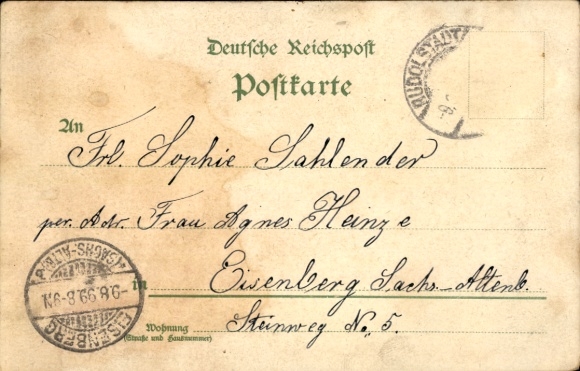 Deutsche Reichspost
Postkarte
RUDOLSTADT
An
Frl. Sophie Sahlender
per. Adr. Frau Agnes Heinze
in Eisenberg Sachs.-Altenb.
Steinweg No. 5.
Wohnung
(Straße und Hausnummer)
EISENBERG
9.8.99.8-9N.